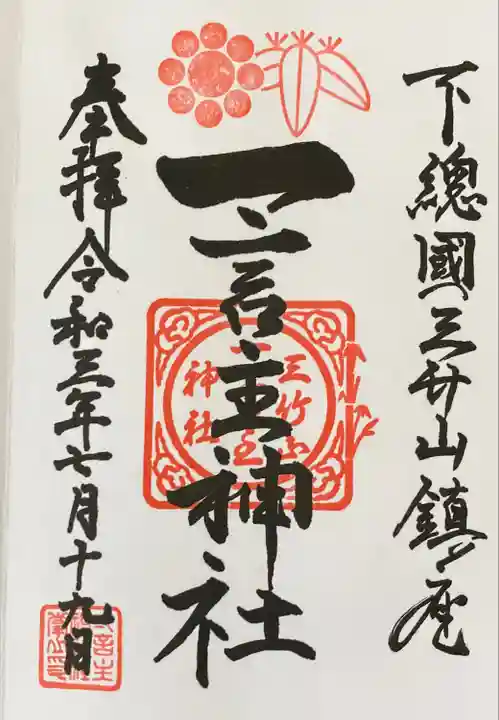 下總國三竹山鎮座
一言主神社
三竹山
神社
奉拝
令和三年七月十九日